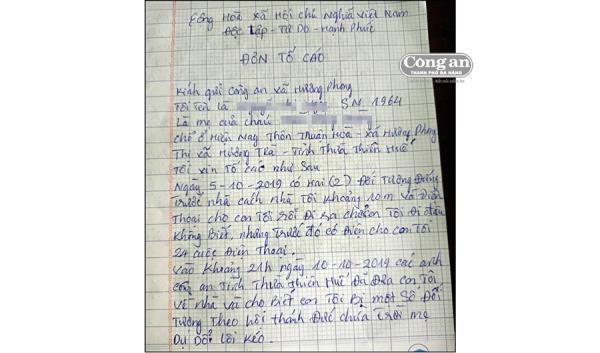 Cộng Hoà Xã Hội chủ Nghĩa Việt Nam
Độc Lập - Tự Do - Hạnh Phúc
ĐƠN TỐ CÁO
Công an
THÀNH PHỐ ĐÀ NẴNG
Kính gửi công an xã Hương Phong
Tôi Tên là SN 1964
Là mẹ của cháu
chổ ở Hiện Nay Thôn Thuận Hoà - xã Hương Phong
Thị xã Hương Trà - Tỉnh Thừa Thiên Huế
Tôi xin Tố cáo như Sau
Ngày 5-10-2019 có Hai (2) Đối Tượng Đứng
Trước nhà cách nhà Tôi Khoảng 10m và Điện
Thoại cho con Tôi rồi Đi ra chở con Tôi Đi đâu
Không Biết, nhưng Trước đó có Điện cho con Tôi
24 cuộc Điện Thoại.
Vào Khoảng 21h ngày 10-10-2019 các anh
công an Tỉnh Thừa Thiên Huế Đã Đưa con Tôi
Về nhà và cho Biết con Tôi Bị một Số Đối
Tượng Theo hội thánh Đức chúa Trời mẹ
Dụ Dổ Lôi Kéo.